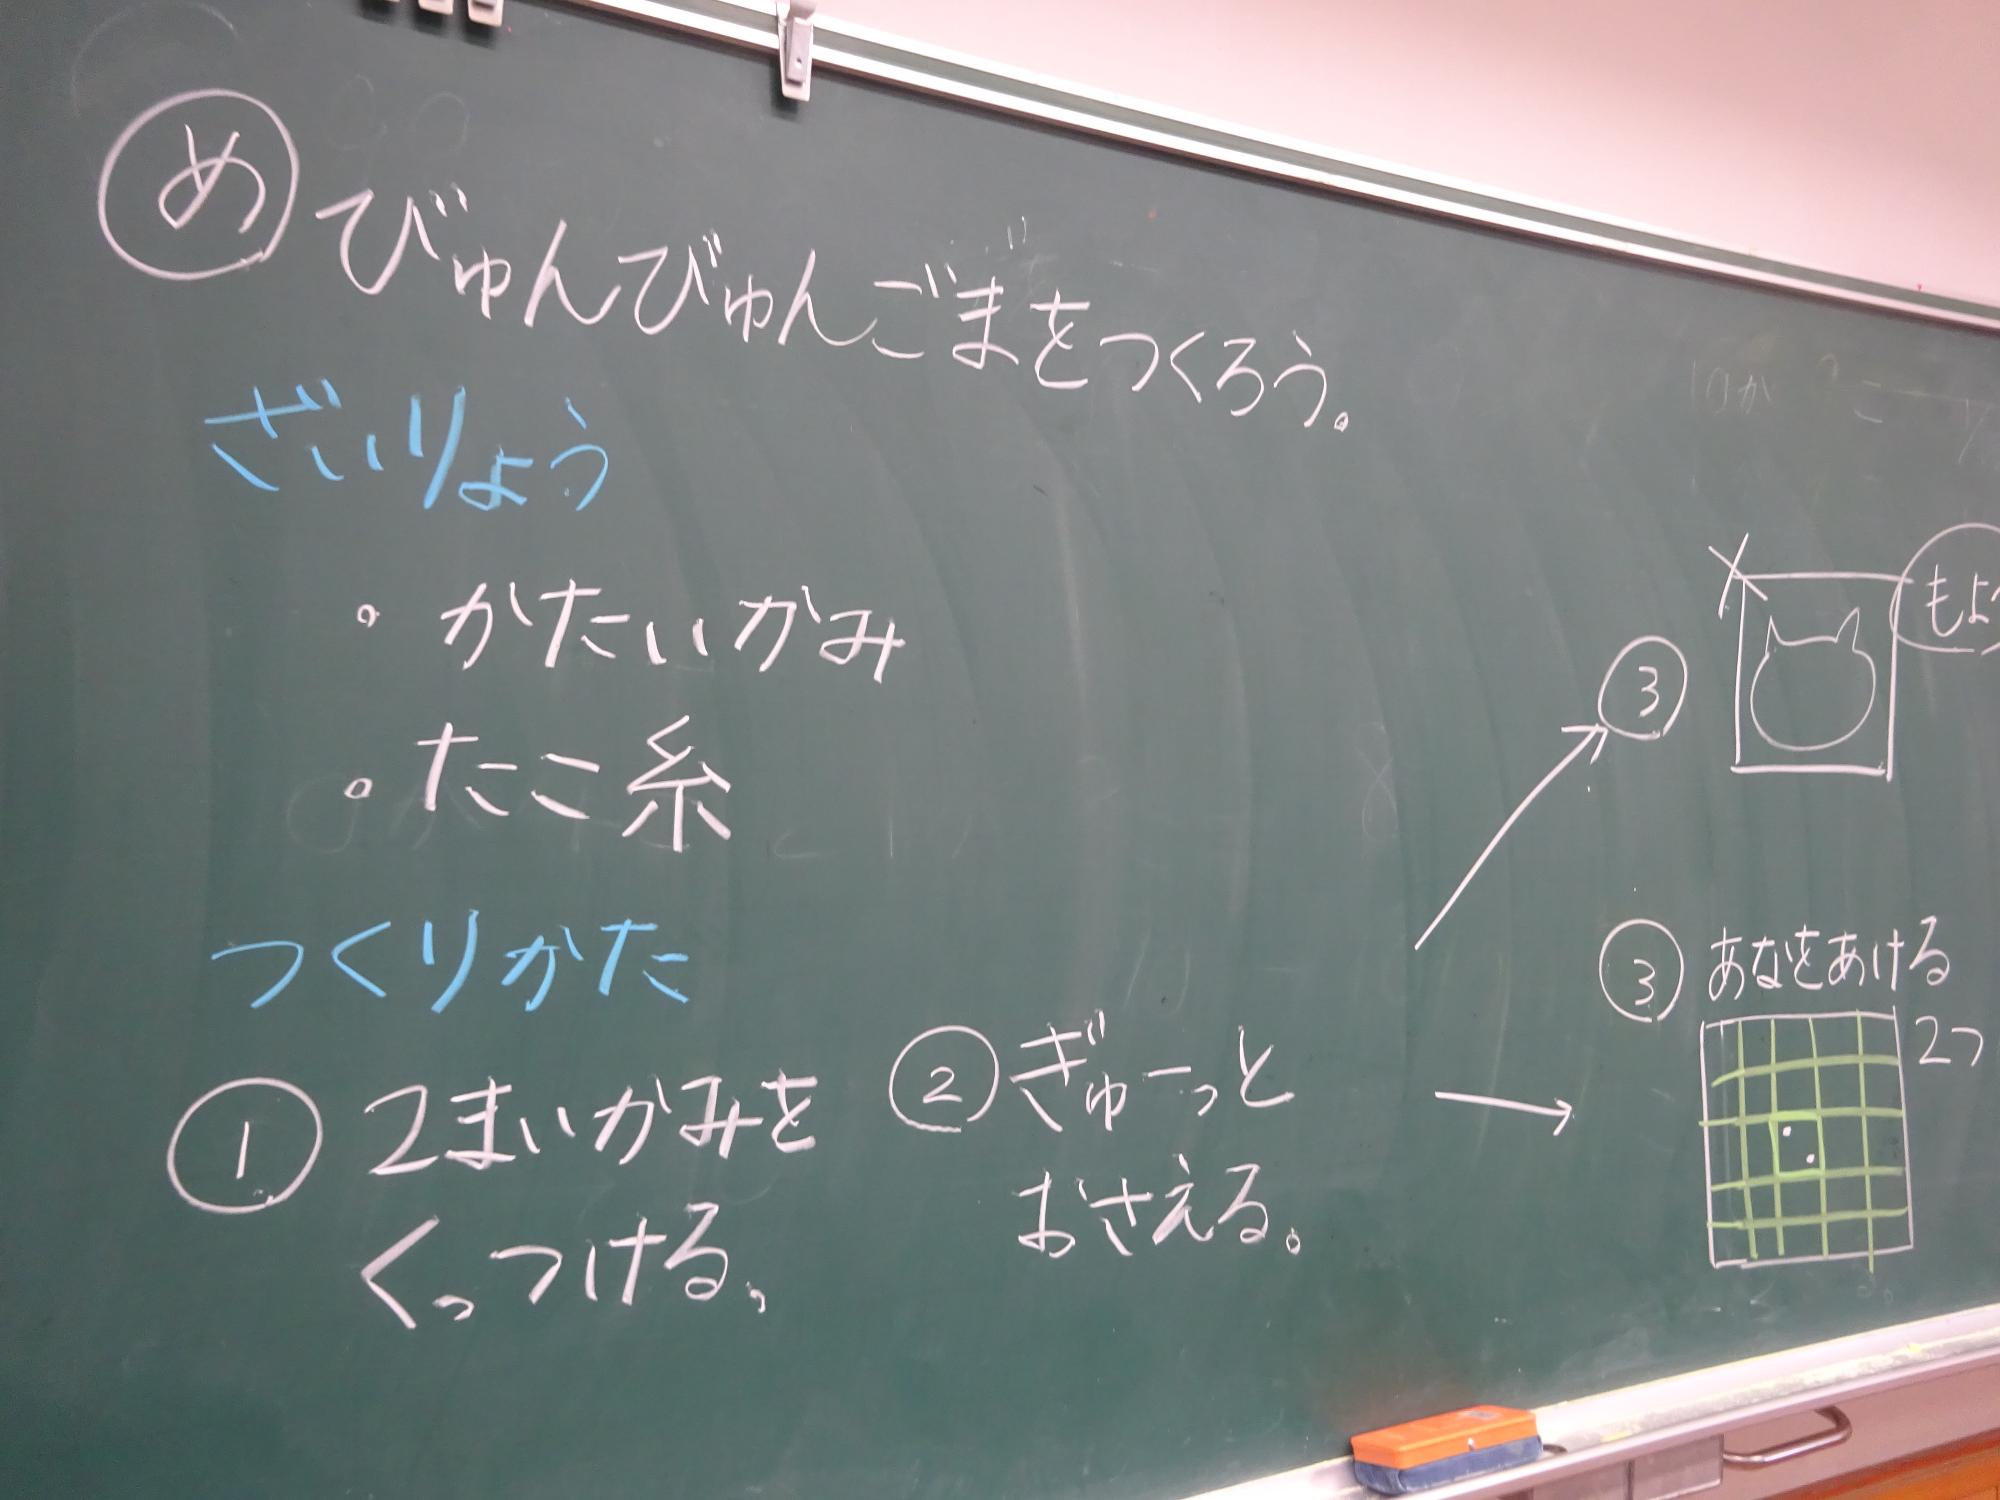 め びゅんびゅんごまをつくろう。
ざいりょう
・かたいかみ
・たこ糸
つくりかた
① 2まいかみを
くっつける、
② ぎゅーっと
おさえる。
③
もよ
③ あなをあける
2つ